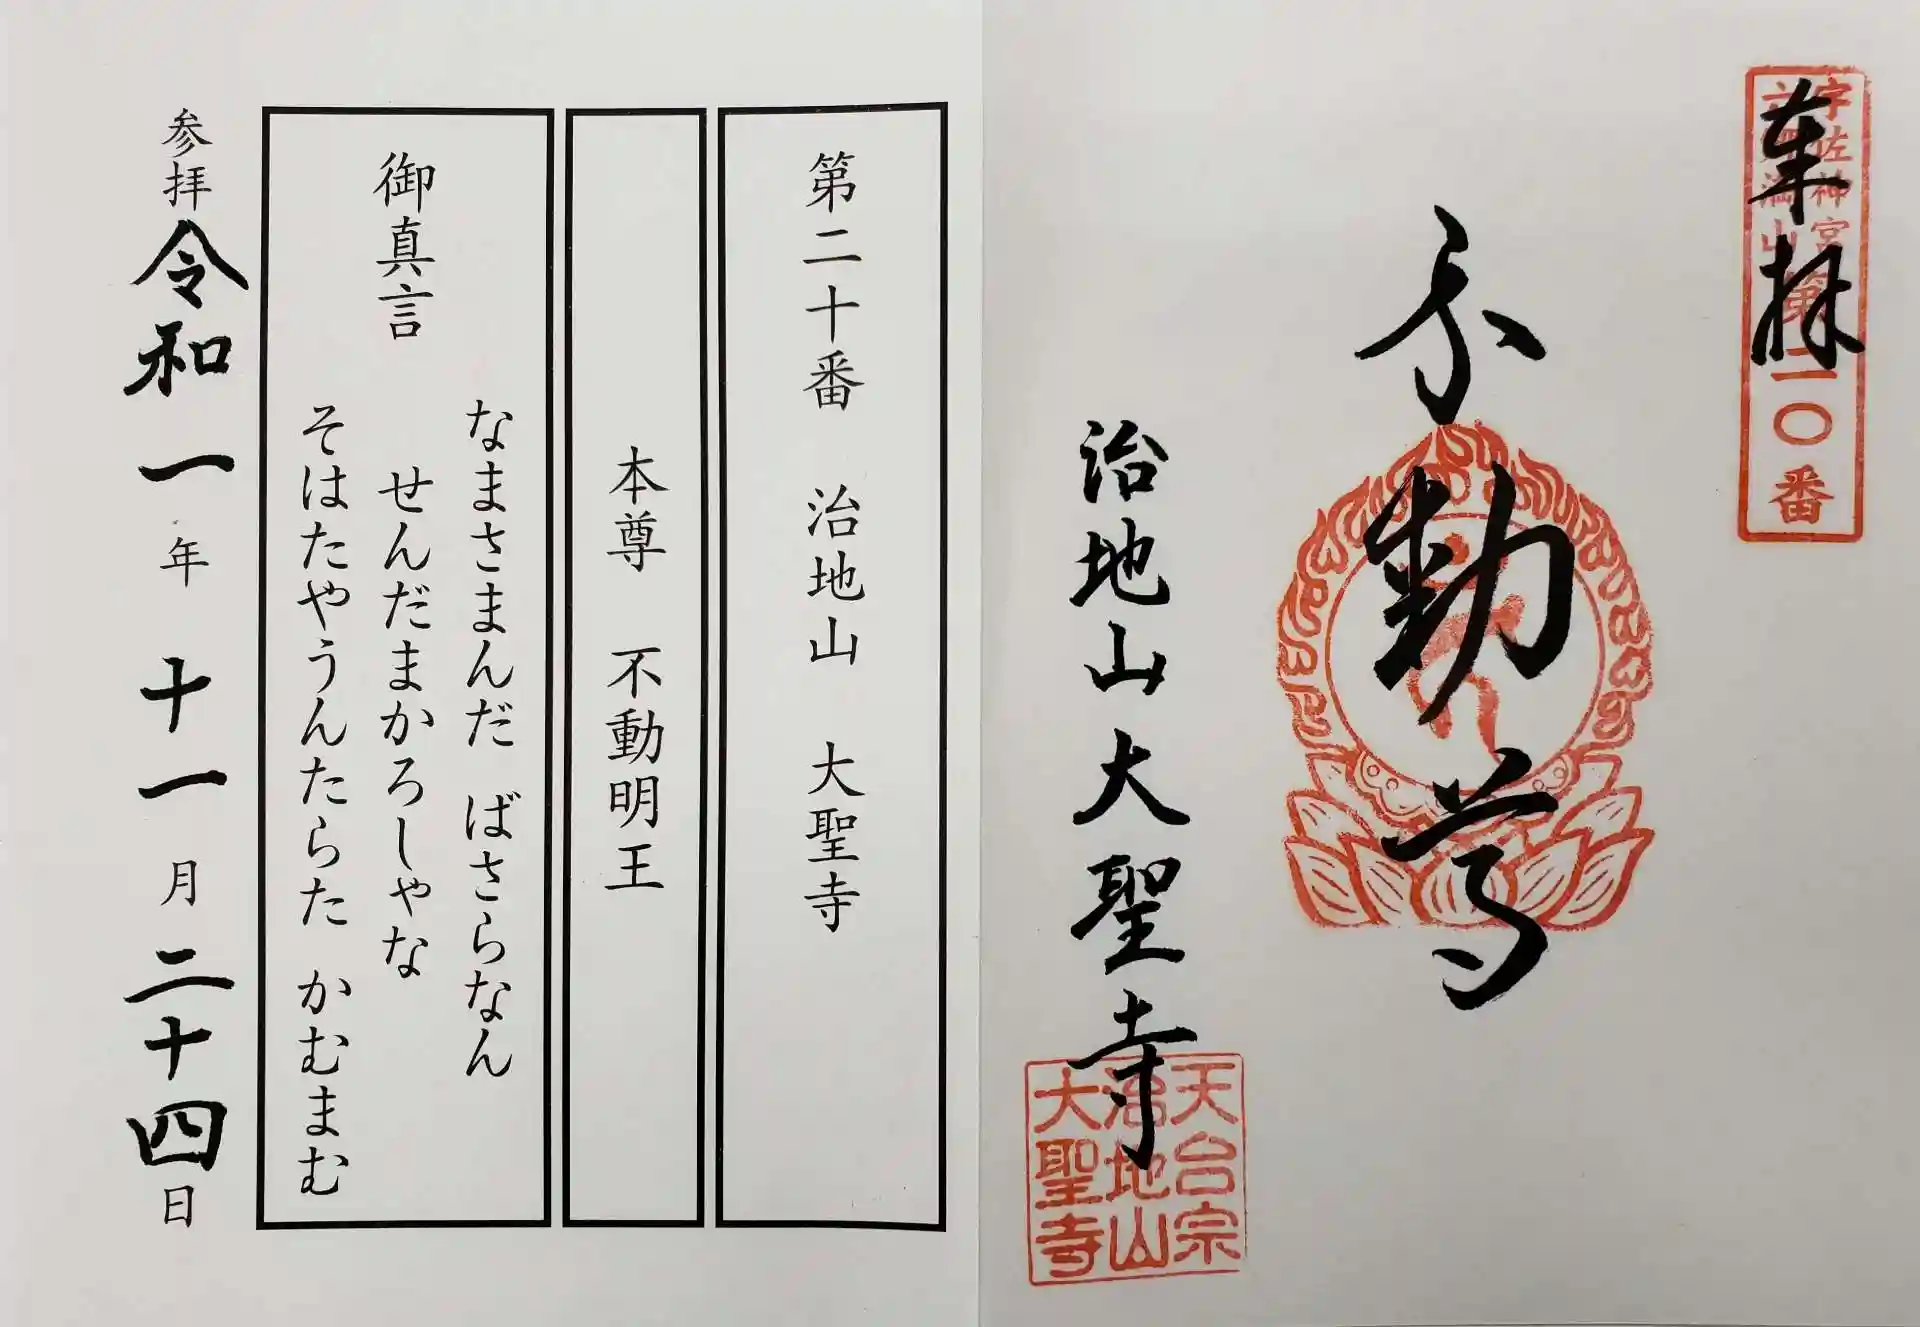 宇佐神宮
六郷満山
第二〇番
奉拝
不動尊
治地山大聖寺
天台宗
治地山
大聖寺
第二十番 治地山 大聖寺
本尊 不動明王
御真言
なまさまんだ ばさらなん
せんだまかろしゃな
そはたやうんたらた かむまむ
参拝 令和一年十一月二十四日